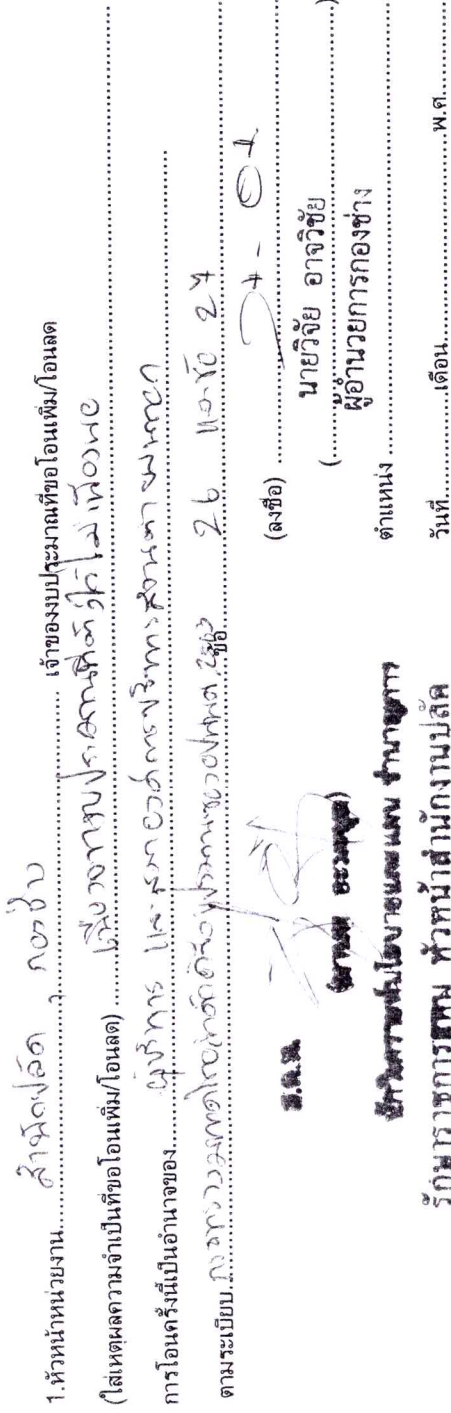 1.หัวหน้าหน่วยงาน.....สำนักปลัด , กองช่าง.....เจ้าของงบประมาณที่ขอโอนเพิ่ม/โอนลด
(ใส่เหตุผลความจำเป็นที่ขอโอนเพิ่ม/โอนลด).....เนื่องจากงบประมาณที่ตั้งไว้ไม่เพียงพอ.....
การโอนครั้งนี้เป็นอำนาจของ.....ผู้บริหาร และสภาองค์การบริหารส่วนตำบล.....
ตามระเบียบ.....กระทรวงมหาดไทยว่าด้วยวิธีงบประมาณของ 2563 ข้อ.....26 และข้อ 27.....
(ลงชื่อ)..........
(.....นายวิจัย อาจวิชัย.....)
ตำแหน่ง.....ผู้อำนวยการกองช่าง.....
วันที่..........เดือน..........พ.ศ..........
ส.ต.ท.
นักวิเคราะห์นโยบายและแผน ชำนาญการ
รักษาราชการแทน หัวหน้าสำนักงานปลัด